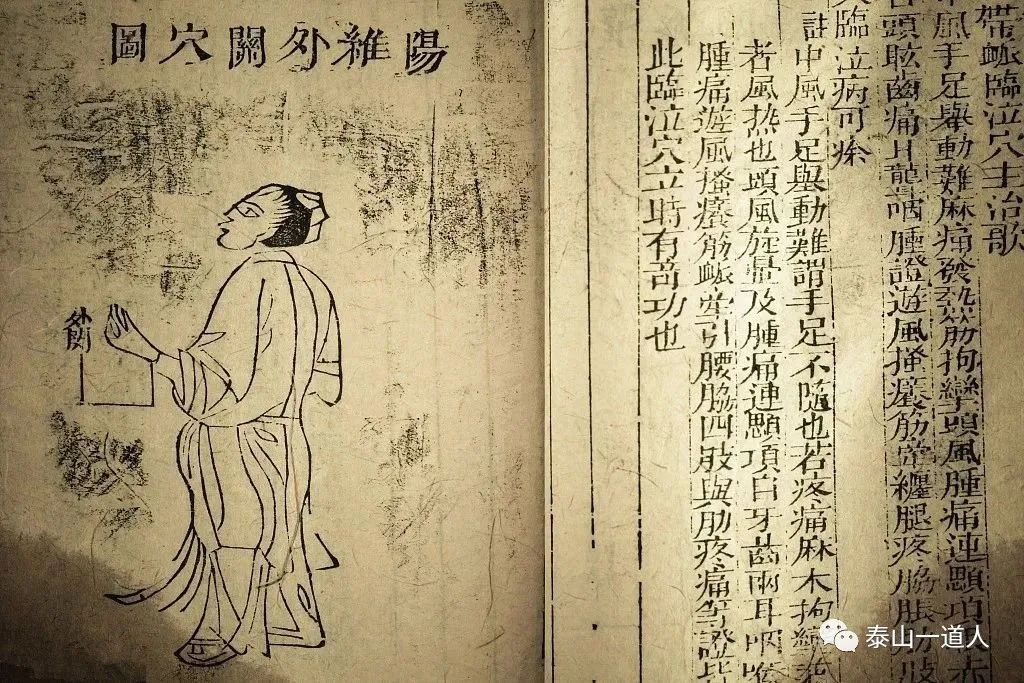 帶䘑臨泣穴主治歌
中風手足舉動難麻痛發熱筋拘攣頭風腫痛連顋項赤
目頭眩齒痛耳聾咽腫證遊風搔癢筋牽纏腿疼脇脹肋肢
入臨泣病可痊
註中風手足舉動難謂手足不隨也若疼痛麻木拘攣
者風热也頭風旋暈及腫痛連顋項目牙齒兩耳咽喉
腫痛遊風搔癢筋䘑牽引腰脇四肢與肋疼痛等證皆
此臨泣穴立時有奇功也
陽維外關穴圖
外關
泰山一道人